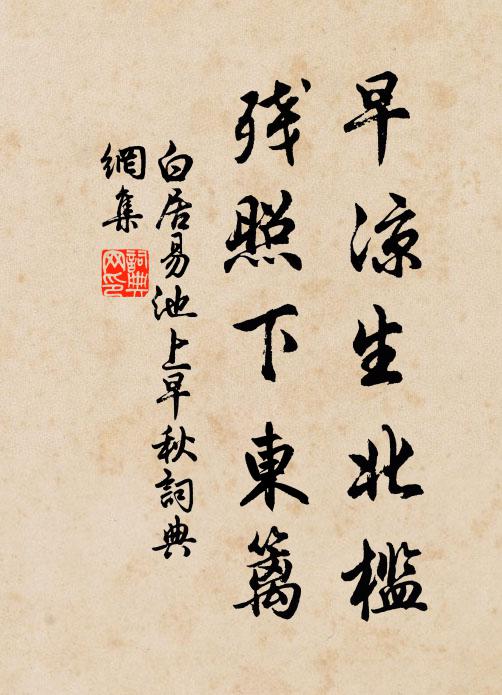 早涼生北檻
残照下東籬
白居易池上早秋詞典
網集
詞典
网印